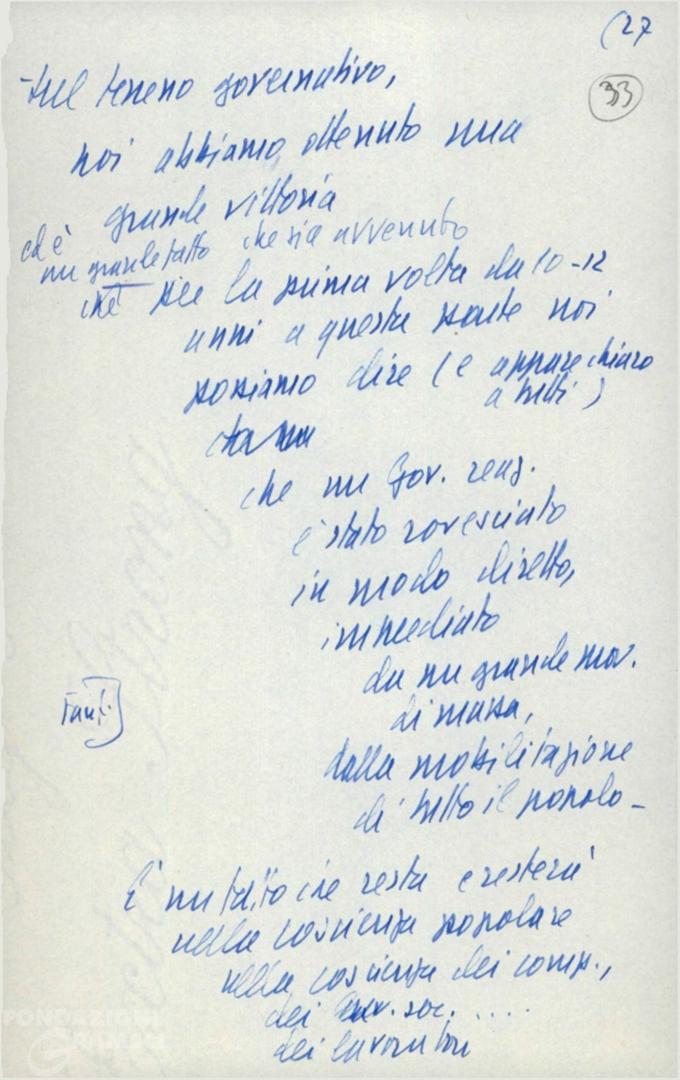 (27
33
sul terreno governativo,
noi abbiamo ottenuto una
grande vittoria
ed è
un grande fatto che sia avvenuto
che per la prima volta da 10-12
anni a questa parte noi
possiamo dire (e appare chiaro
a tutti)
che un Gov. reaz.
è stato rovesciato
in modo diretto,
immediato
da un grande mov.
di massa,
dalla mobilitazione
di tutto il popolo -
È un fatto che resta e resterà
nella coscienza popolare
nella coscienza dei comp.,
dei soc. ....
dei lavoratori
FONDAZIONE
GRAMSCI